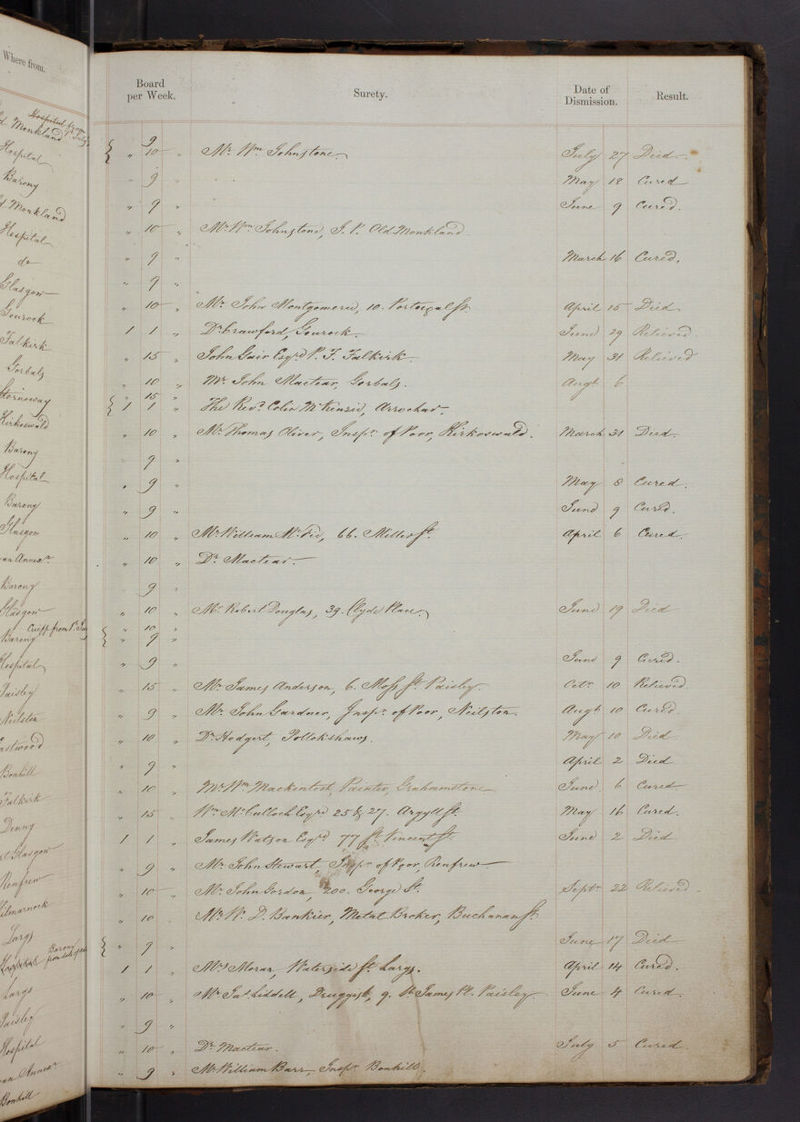 Where from.
Board per Week.
Surety.
Date of Dismission.
Result.
Hospital
Old Monkland
9
" 10 " Mr. Wm Johnstone July 27 Died
Hospital
" 9 " May 18 Cured
Barony
" 9 " June 9 Cured.
Monkland
" 10 " Mr. Wm Johnstone, J. P. Old Monkland
Hospital
" 9 " March 16 Cured.
do
" 9 "
Glasgow
" 10 " Mr. John Montgomerie, 10. Portugal St. April 15 Died
Gourock
1 1 " Dr. Crawford, Gourock June 29 Relieved
Falkirk
" 15 " John Gair Esqre P. F. Falkirk May 31 Relieved
Gorbals
" 10 " Mr. John Mactear, Gorbals. Augt 6
Stornoway
" 15 "
1 1 " The Revd. Colin McKenzie, Arrochar.
Kirkoswald
" 10 " Mr. Thomas Oliver, Inspr. of Poor, Kirkoswald. March 31 Died.
Barony
" 9 "
Hospital
" 9 " May 8 Cured.
Barony
" 9 " June 9 Cured.
Glasgow
" 10 " Mr. William 66. Miller St. April 6 Cured.
" 10 " Dr. Mactear.
Barony
" 9 "
Glasgow
" 10 " Mr. Robert Douglas, 39. Clyde Place. June 19 Died
Barony
" 10 "
" 9 "
Hospital
" 9 " June 9 Cured.
Paisley
" 15 " Mr. James Anderson, 6. Moss St. Paisley. Octr. 10 Relieved
Neilston
" 9 " Mr. John Gardner, Inspr. of Poor, Neilston Augt 10 Cured
Eastwood
" 10 " Dr. Hodgert, Pollokshaws. May 10 Died
Bonhill
" 9 " April 2 Died
Falkirk
" 10 " Mr. Wm Mackintosh, Painter, Grahamstone June 6 Cured
Denny
" 15 " Wm McCulloch Esqre 25 & 27. Argyll St. May 16 Cured.
Glasgow
1 1 " James Watson Esqre 77 St. Vincent St. June 2 Died
Renfrew
" 9 " Mr. John Stewart, Inspr. of Poor, Renfrew
Kilmarnock
" 10 " Mr. John Gordon, 200. George St. Septr 22 Relieved.
" 10 " Mr. W. P. Bankier, Metal Broker, Buchanan St.
Largs
Barony
" 9 " June 17 Died
1 1 " Mrs Moran, Waterside St. Largs. April 14 Cured.
Largs
" 10 " Mr. Jas. Liddell, Druggist, 9. St. James Pl. Paisley June 4 Cured.
Paisley
" 9 "
Hospital
" 10 " Dr. Mactear. July 5 Cured
" 9 " Mr. William Barr, Inspr. Bonhill.
Bonhill